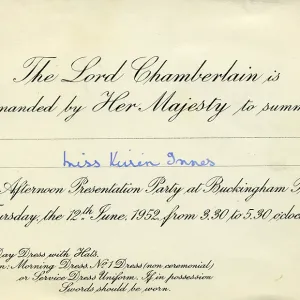 The Lord Chamberlain is
manded by Her Majesty to summ
Miss Kirin Innes
Afternoon Presentation Party at Buckingham P
ursday, the 12th June, 1952, from 3.30 to 5.30 o'cloc
Day Dress with Hats.
n: Morning Dress, No 1 Dress (non ceremonial)
or Service Dress Uniform. If in possession
Swords should be worn.